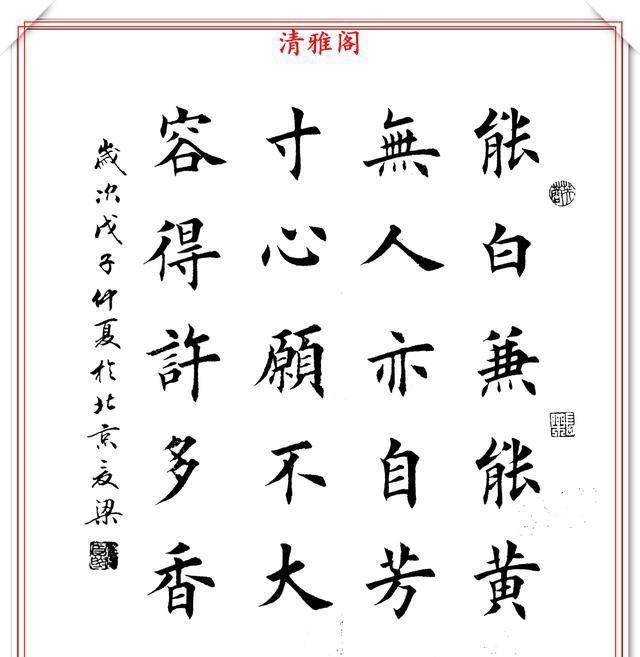 清雅阁
能白兼能黄
無人亦自芳
寸心願不大
容得許多香
歲次戊子仲夏於北京夌梁